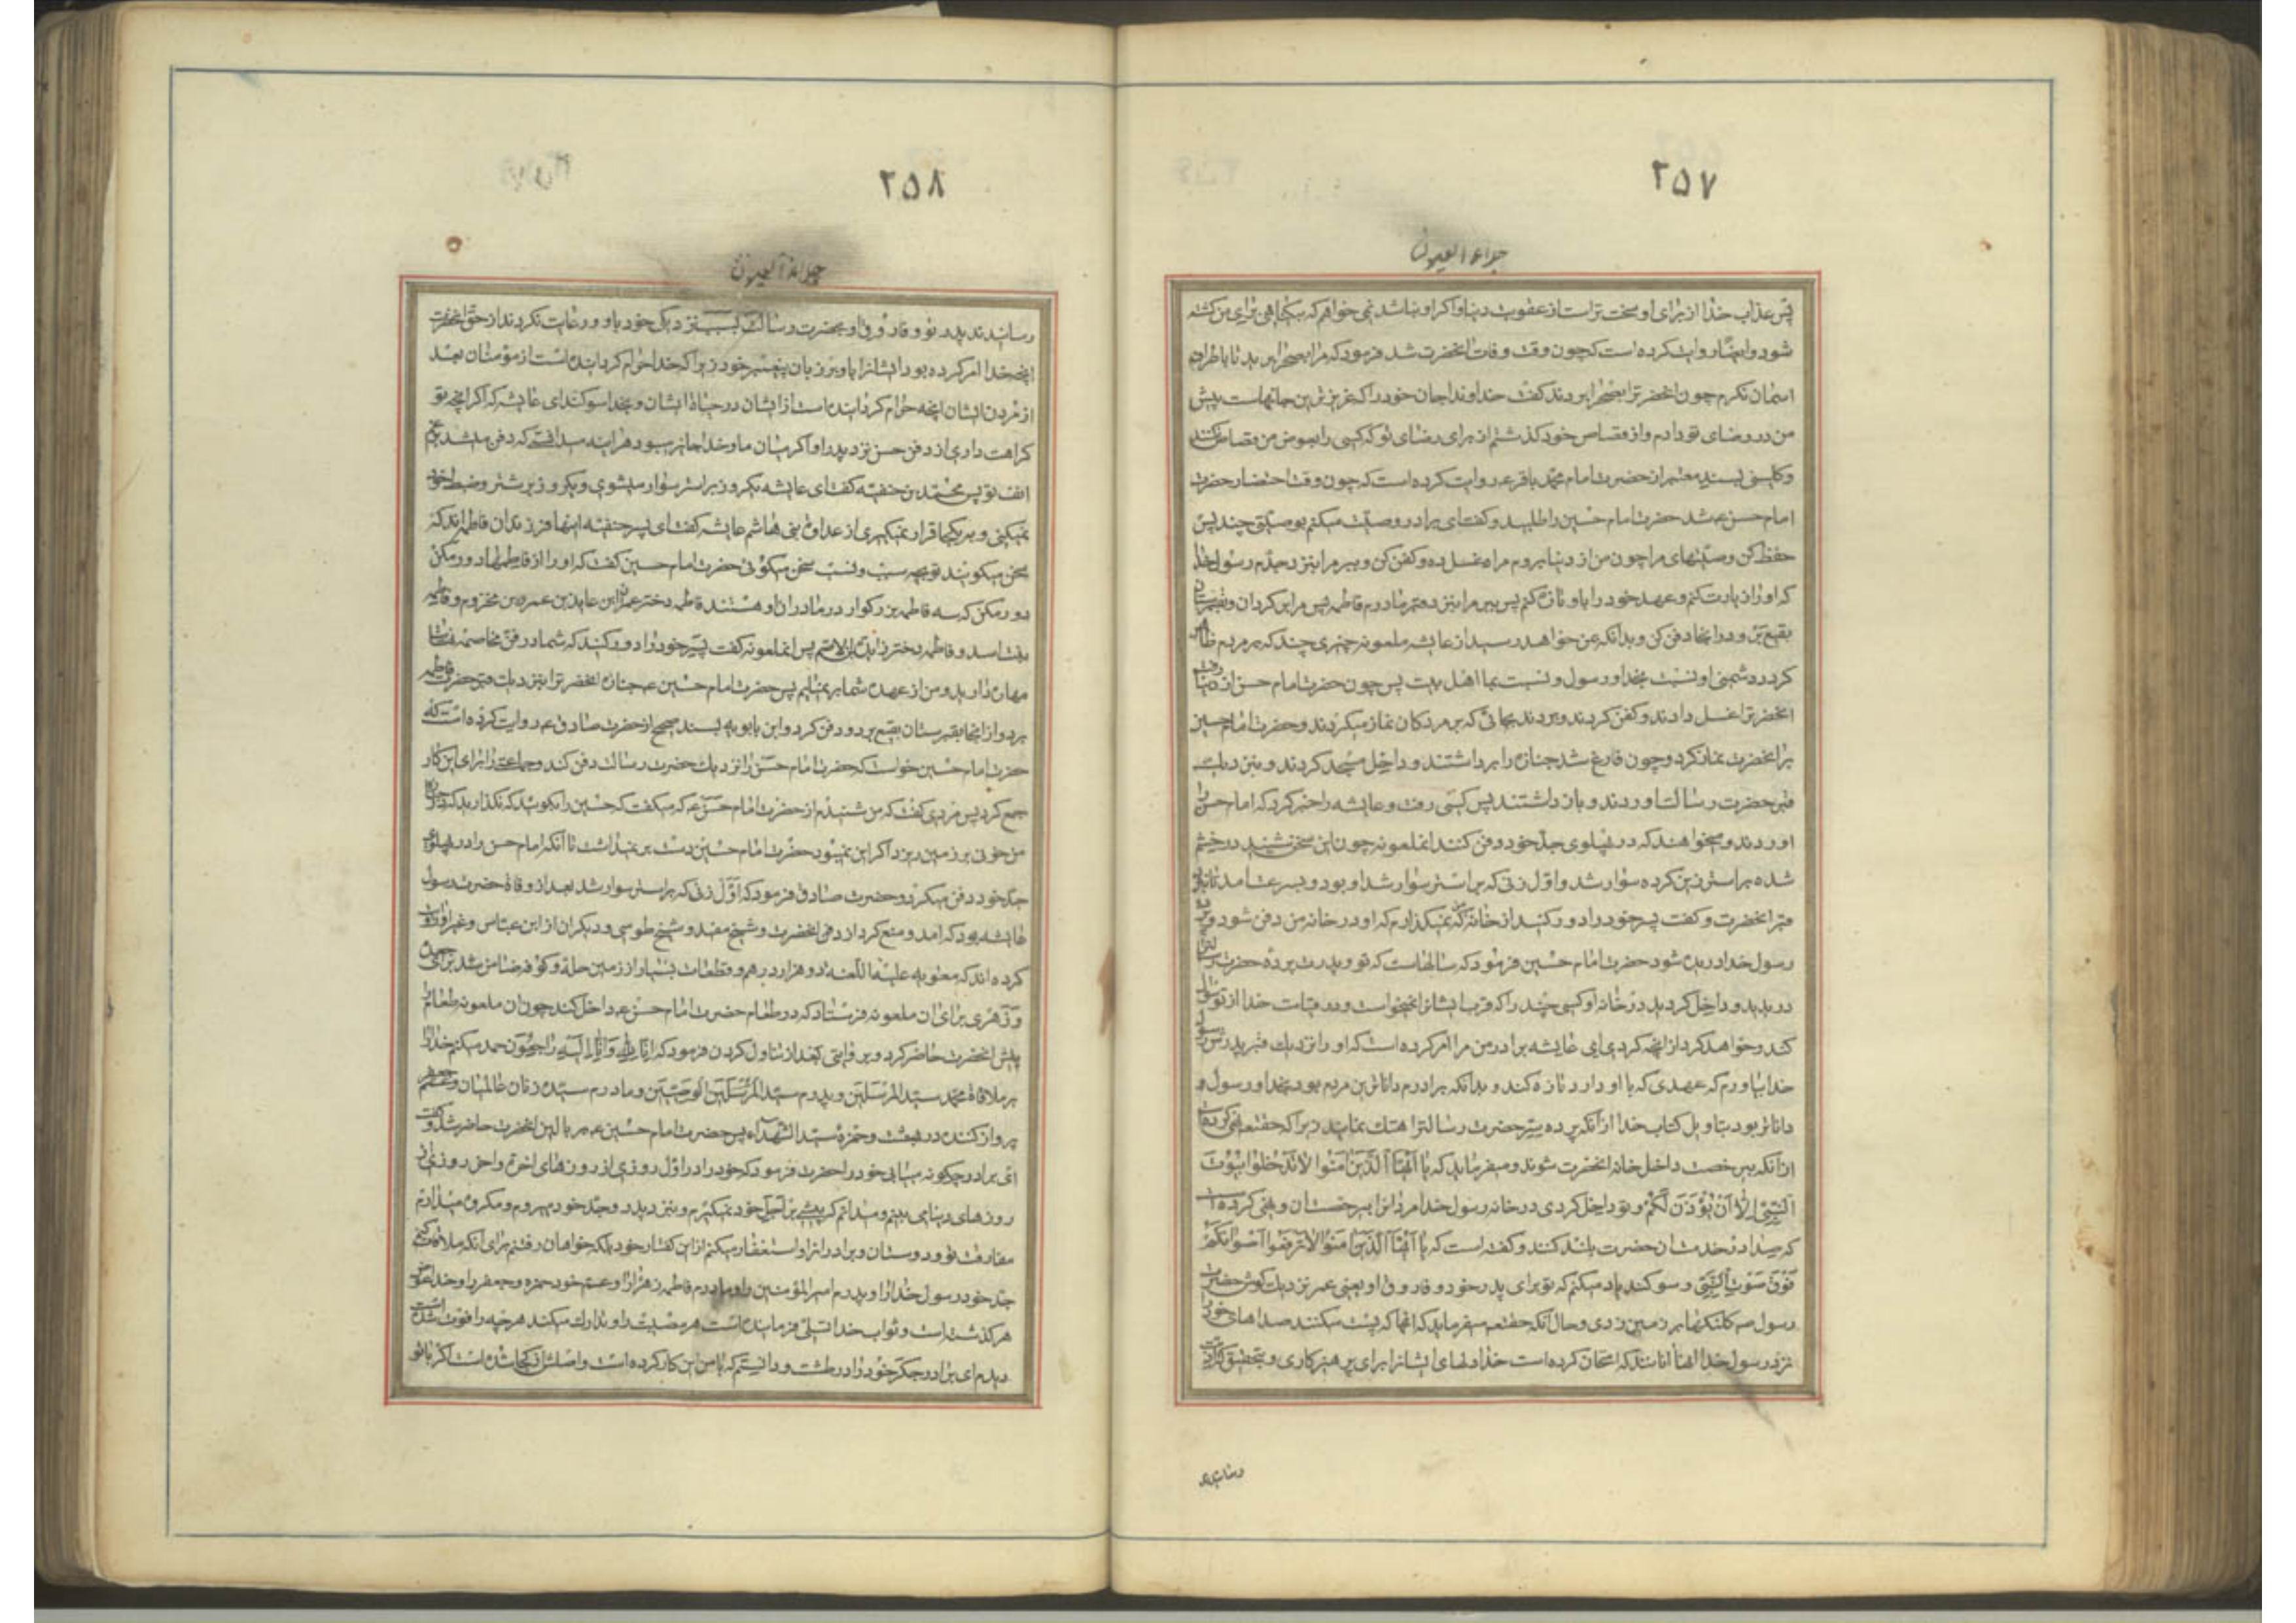 ۲۵۷
جلاء العیون
پس عذاب خدا از برای او سخت تر است از عقوبت دنیا و اگر او نباشد نمی خواهم که بیگناهی برای من کشته
شود و ایضا روایت کرده است که چون وقت وفات انحضرت شد فرمود که مرا بصحرا برید تا باطراف
اسمان نکرم چون انحضرترا بصحرا بردند گفت خداوندا جان خود را که عزیزترین جانهاست پیش
من در رضای تو دادم و از قصاص خود گذشتم از برای رضای تو که کسی را بعوض من قصاص نکنند
و کلینی بسند معتبر از حضرت امام محمد باقر ع روایت کرده است که چون وقت احتضار حضرت
امام حسن ع شد حضرت امام حسین را طلبید و گفت ای برادر وصیت میکنم بوصیتی چند پس
حفظ کن وصیتهای مرا چون من از دنیا بروم مرا غسل ده و کفن کن و ببر مرا بنزد جدم رسول خدا
که او را زیارت کنم و عهد خود را باو تازه کنم پس ببر مرا بنزد قبر مادرم فاطمه پس مرا برگردان و بقبرستان
بقیع بر و در انجا دفن کن و بدانکه بمن خواهد رسید از عایشه ملعونه چیزی چند که بر مردم ظاهر
گردد دشمنی او نسبت بخدا و رسول و نسبت بما اهل بیت پس چون حضرت امام حسن از دنیا رفت
انحضرترا غسل دادند و کفن کردند و بردند بجائی که بر مردگان نماز میکردند و حضرت امام حسین
بر انحضرت نماز کرد و چون فارغ شد جنازه را برداشتند و داخل مسجد کردند و بنزدیک
قبر حضرت رسالت اوردند و باز داشتند پس کسی رفت و عایشه را خبر کرد که امام حسن را
اوردند و میخواهند که در پهلوی جد خود دفن کنند انملعونه چون این سخن شنید در خشم
شده بر استر زین کرده سوار شد و اول زنی که بر استر سوار شد او بود و بسرعت امد تا بنزد
قبر انحضرت و گفت پسر خود را دور کنید از خانه من که نمیگذارم که او در خانه من دفن شود و پرده
رسول خدا دریده شود حضرت امام حسین فرمود که سالهاست که تو و پدرت پرده حضرت رسالترا
دریدید و داخل کردید در خانه او کسی چند را که قرب ایشانرا نمیخواست و در قیامت خدا از تو سوال
کند و خواهد کرد از انچه کردی ای عایشه برادر من مرا امر کرده است که او را نزدیک قبر پدرش رسول
خدا بیاورم که عهدی که با او دارد تازه کند و بدانکه برادرم داناترین مردم بود بخدا و رسول و
داناتر بود بتاویل کتاب خدا از آنکه پرده ستر حضرت رسالترا هتک نماید زیرا که حقتعالی نهی کرده است
از آنکه بی رخصت داخل خانه انحضرت شوند و میفرماید که یا ایها الذین امنوا لا تدخلوا بیوت
النبی الا ان یؤذن لکم و تو داخل کردی در خانه رسول خدا مردانرا بیرخصت ان و نهی کرده است
که صدا در خدمت ان حضرت بلند کنند و گفته است که یا ایها الذین امنوا لا ترفعوا اصواتکم
فوق صوت النبی و سوگند یاد میکنم که تو برای پدر خود و فاروق او یعنی عمر نزدیک گوش حضرت
رسول ص کلنگها بر زمین زدی و حال آنکه حقتعالی میفرماید که انها که پست میکنند صداهای خود را
نزد رسول خدا انها آنانند که امتحان کرده است خدا دلهای ایشانرا برای پرهیزکاری و بتحقیق که اذیت
رسانیدند
۲۵۸
جلاء العیون
رسانیدند پدر تو و فاروق او بحضرت رسالت بسبب نزدیکی خود باو و رعایت نکردند از حق انحضرت
انچه خدا امر کرده بود ایشانرا باو بر زبان پیغمبر خود زیرا که خدا حرام گردانیده است از مؤمنان بعد
از مردن ایشان انچه حرام گردانیده است از ایشان در حیاة ایشان و بخدا سوگند ای عایشه که اگر انچه تو
کراهت داری از دفن حسن نزد پدر او اگر میان ما و خدا جایز میبود هراینه میدانستی که دفن میشد برغم
انف تو پس محمد بن حنفیه گفت ای عایشه یکروز بر استر سوار میشوی و یکروز بر شتر و ضبط خود
نمیکنی و بر یکجا قرار نمیگیری از عداوة بنی هاشم عایشه گفت ای پسر حنفیه اینها فرزندان فاطمه اند که
سخن میگویند تو بچه سبب و نسب سخن میگوئی حضرت امام حسین گفت که او را از فاطمها دور مکن
دور مکن که سه فاطمه بزرگوار در مادران او هستند فاطمه دختر عمران ابن عایذ بن عمرو بن مخزوم و فاطمه
بنت اسد و فاطمه دختر زایدة بن الاصم پس انملعونه گفت پسر خود را دور کنید که شما در فن مخاصمه
مهارت دارید و من از عهده شما بر نمیایم پس حضرت امام حسین ع جنازه انحضرترا بنزدیک قبر حضرت فاطمه
برد و از انجا بقبرستان بقیع برد و دفن کرد و ابن بابویه بسند صحیح از حضرت صادق ع روایت کرده است که
حضرت امام حسین خواست که حضرت امام حسن را نزدیک حضرت رسالت دفن کند و جماعتی را برای این کار
جمع کرد پس مردی گفت که من شنیدم از حضرت امام حسن ع که میگفت که حسین را بگوئید که نگذارید که در جنازه
من خونی بر زمین ریزد اگر این نمیبود حضرت امام حسین دست بر نمیداشت تا آنکه امام حسن را در پهلوی
جد خود دفن میکرد و حضرت صادق فرمود که اول زنی که بر استر سوار شد بعد از وفاة حضرت رسول
عایشه بود که امد و منع کرد از دفن انحضرت و شیخ مفید و شیخ طوسی و دیگران از ابن عباس و غیر او روایت
کرده اند که معویه علیه اللعنه ده هزار درهم و قطعات بسیار از زمین حله و کوفه ضامن شد برای جعده
و زهری برای ان ملعونه فرستاد که در طعام حضرت امام حسن ع داخل کند چون ان ملعونه طعام را
پیش انحضرت حاضر کرد و بروایتی بعد از تناول کردن فرمود که انا لله و انا الیه راجعون حمد میکنم خدا را
بر ملاقاة محمد سید المرسلین و پدرم سید الوصیین و مادرم سیده زنان عالمیان و عمم جعفر
پرواز کننده در بهشت و حمزه سید الشهداء پس حضرت امام حسین ع بر بالین انحضرت حاضر شد و گفت
ای برادر چگونه میابی خود را حضرت فرمود که خود را در اول روزی از روزهای اخرة و اخر روزی از
روزهای دنیا می بینم و میدانم که پیشی بر اجل خود نمیگیرم و بنزد پدر و جد خود میروم و مکروه میدارم
مفارقت تو و دوستان و برادرانرا و استغفار میکنم از این گفتار خود بلکه خواهان رفتنم برای آنکه ملاقات کنم
جد خود رسول خدا را و پدرم امیر المؤمنین را و مادرم فاطمه زهرا را و عم خود حمزه و جعفر را و خدا عوض
هر گذشته است و ثواب خدا تسلی فرماینده است هر مصیبت را و تدارک میکند هر چه را فوت شده است
دیدم ای برادر جگر خود را در طشت و دانستم که با من این کار کرده است و اصلش از کجا شده است اگر با تو